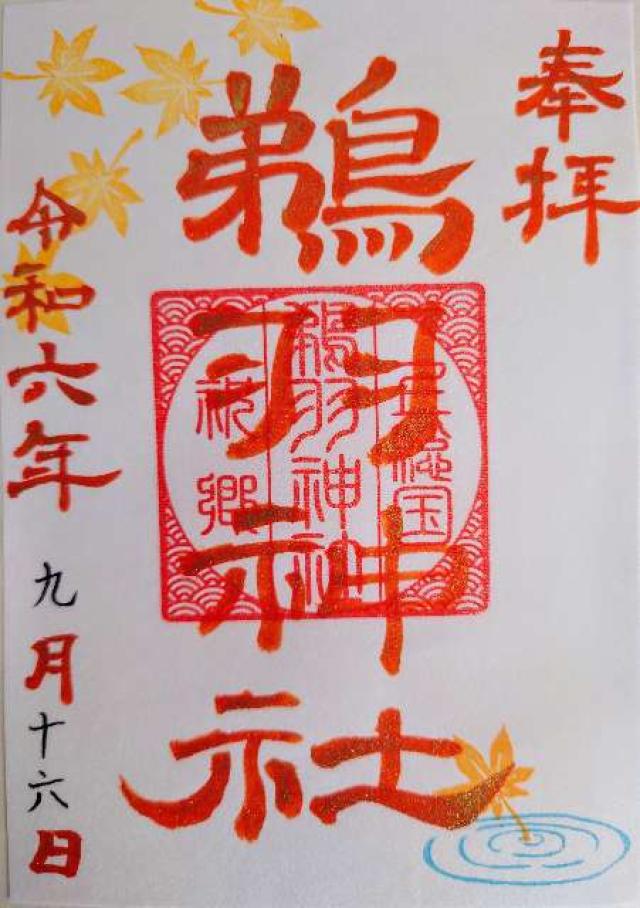 奉拝
鵜羽神社
鵜羽神社
祝郷
令和六年九月十六日